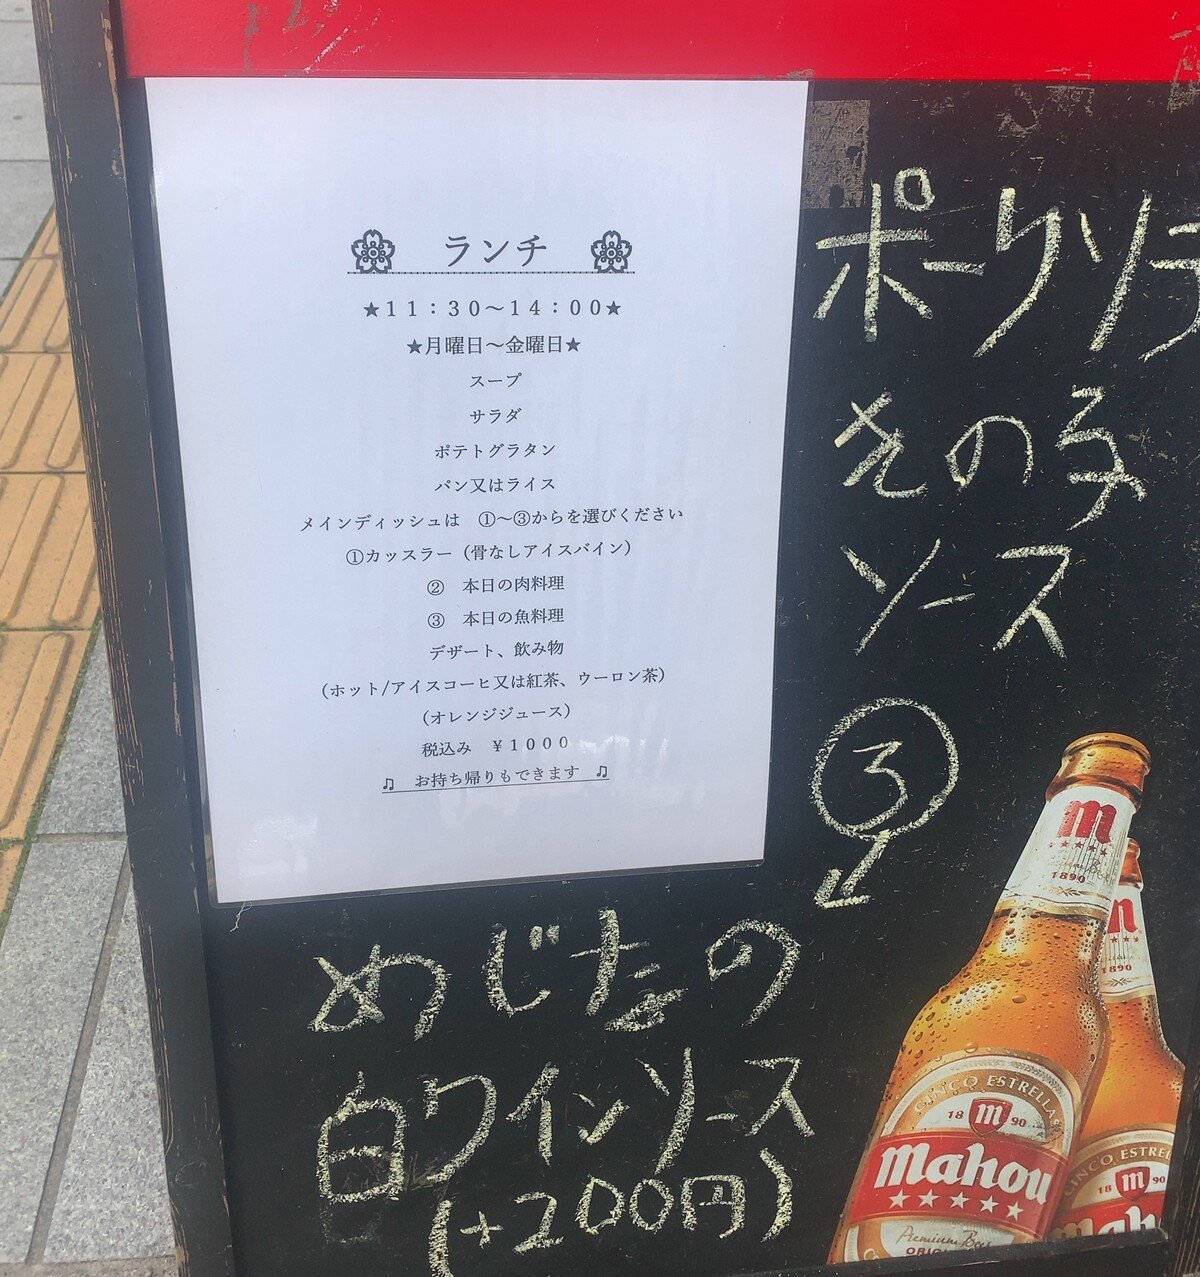 ランチ
★11:30～14:00★
★月曜日～金曜日★
スープ
サラダ
ポテトグラタン
パン又はライス
メインディッシュは　①～③からを選びください
①カッスラー（骨なしアイスバイン）
②　本日の肉料理
③　本日の魚料理
デザート、飲み物
（ホット/アイスコーヒ又は紅茶、ウーロン茶）
（オレンジジュース）
税込み　￥1000
♫　お持ち帰りもできます　♫
ポークソテ
きの子
ソース
③
めじなの
白ワインソース
(+200円)
m
1890
CINCO ESTRELLAS
18 m 90
Mahou
Premium Beer
m
1890
CINCO ESTRE
18 m 90
Mahou